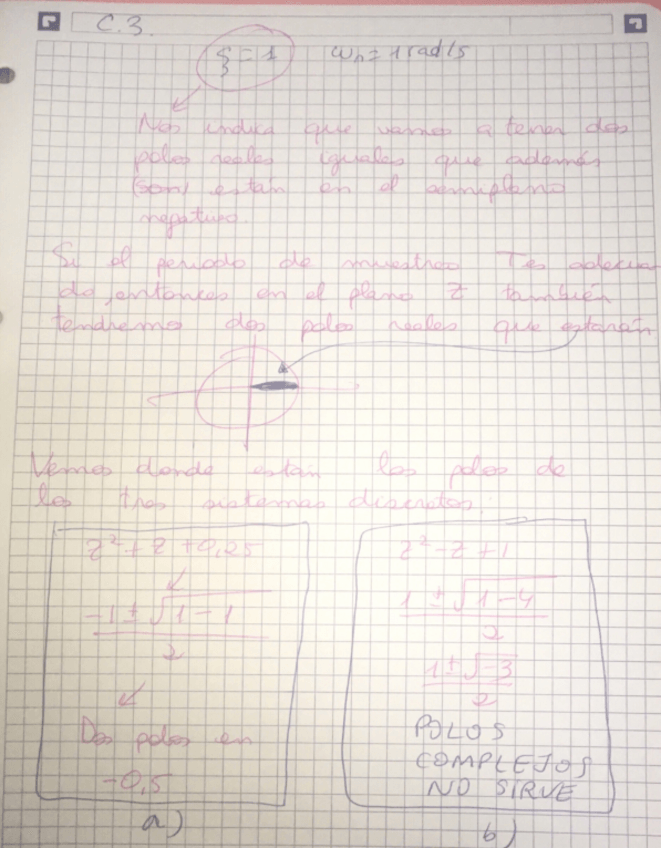 C.3.
ξ = 1 ωn = 1 rad/s
Nos indica que vamos a tener dos
polos reales iguales que además
(son) están en el semiplano
negativo.
Si el periodo de muestreo T es adecua
do entonces en el plano z también
tendremos dos polos reales que estarán
Vemos donde están los polos de
los tres sistemas discretos.
z² + z + 0,25
-1 ± √1 - 1
2
Dos polos en
-0,5
a)
z² - z + 1
1 ± √1 - 4
2
1 ± √-3
2
POLOS
COMPLEJOS
NO SIRVE
b)